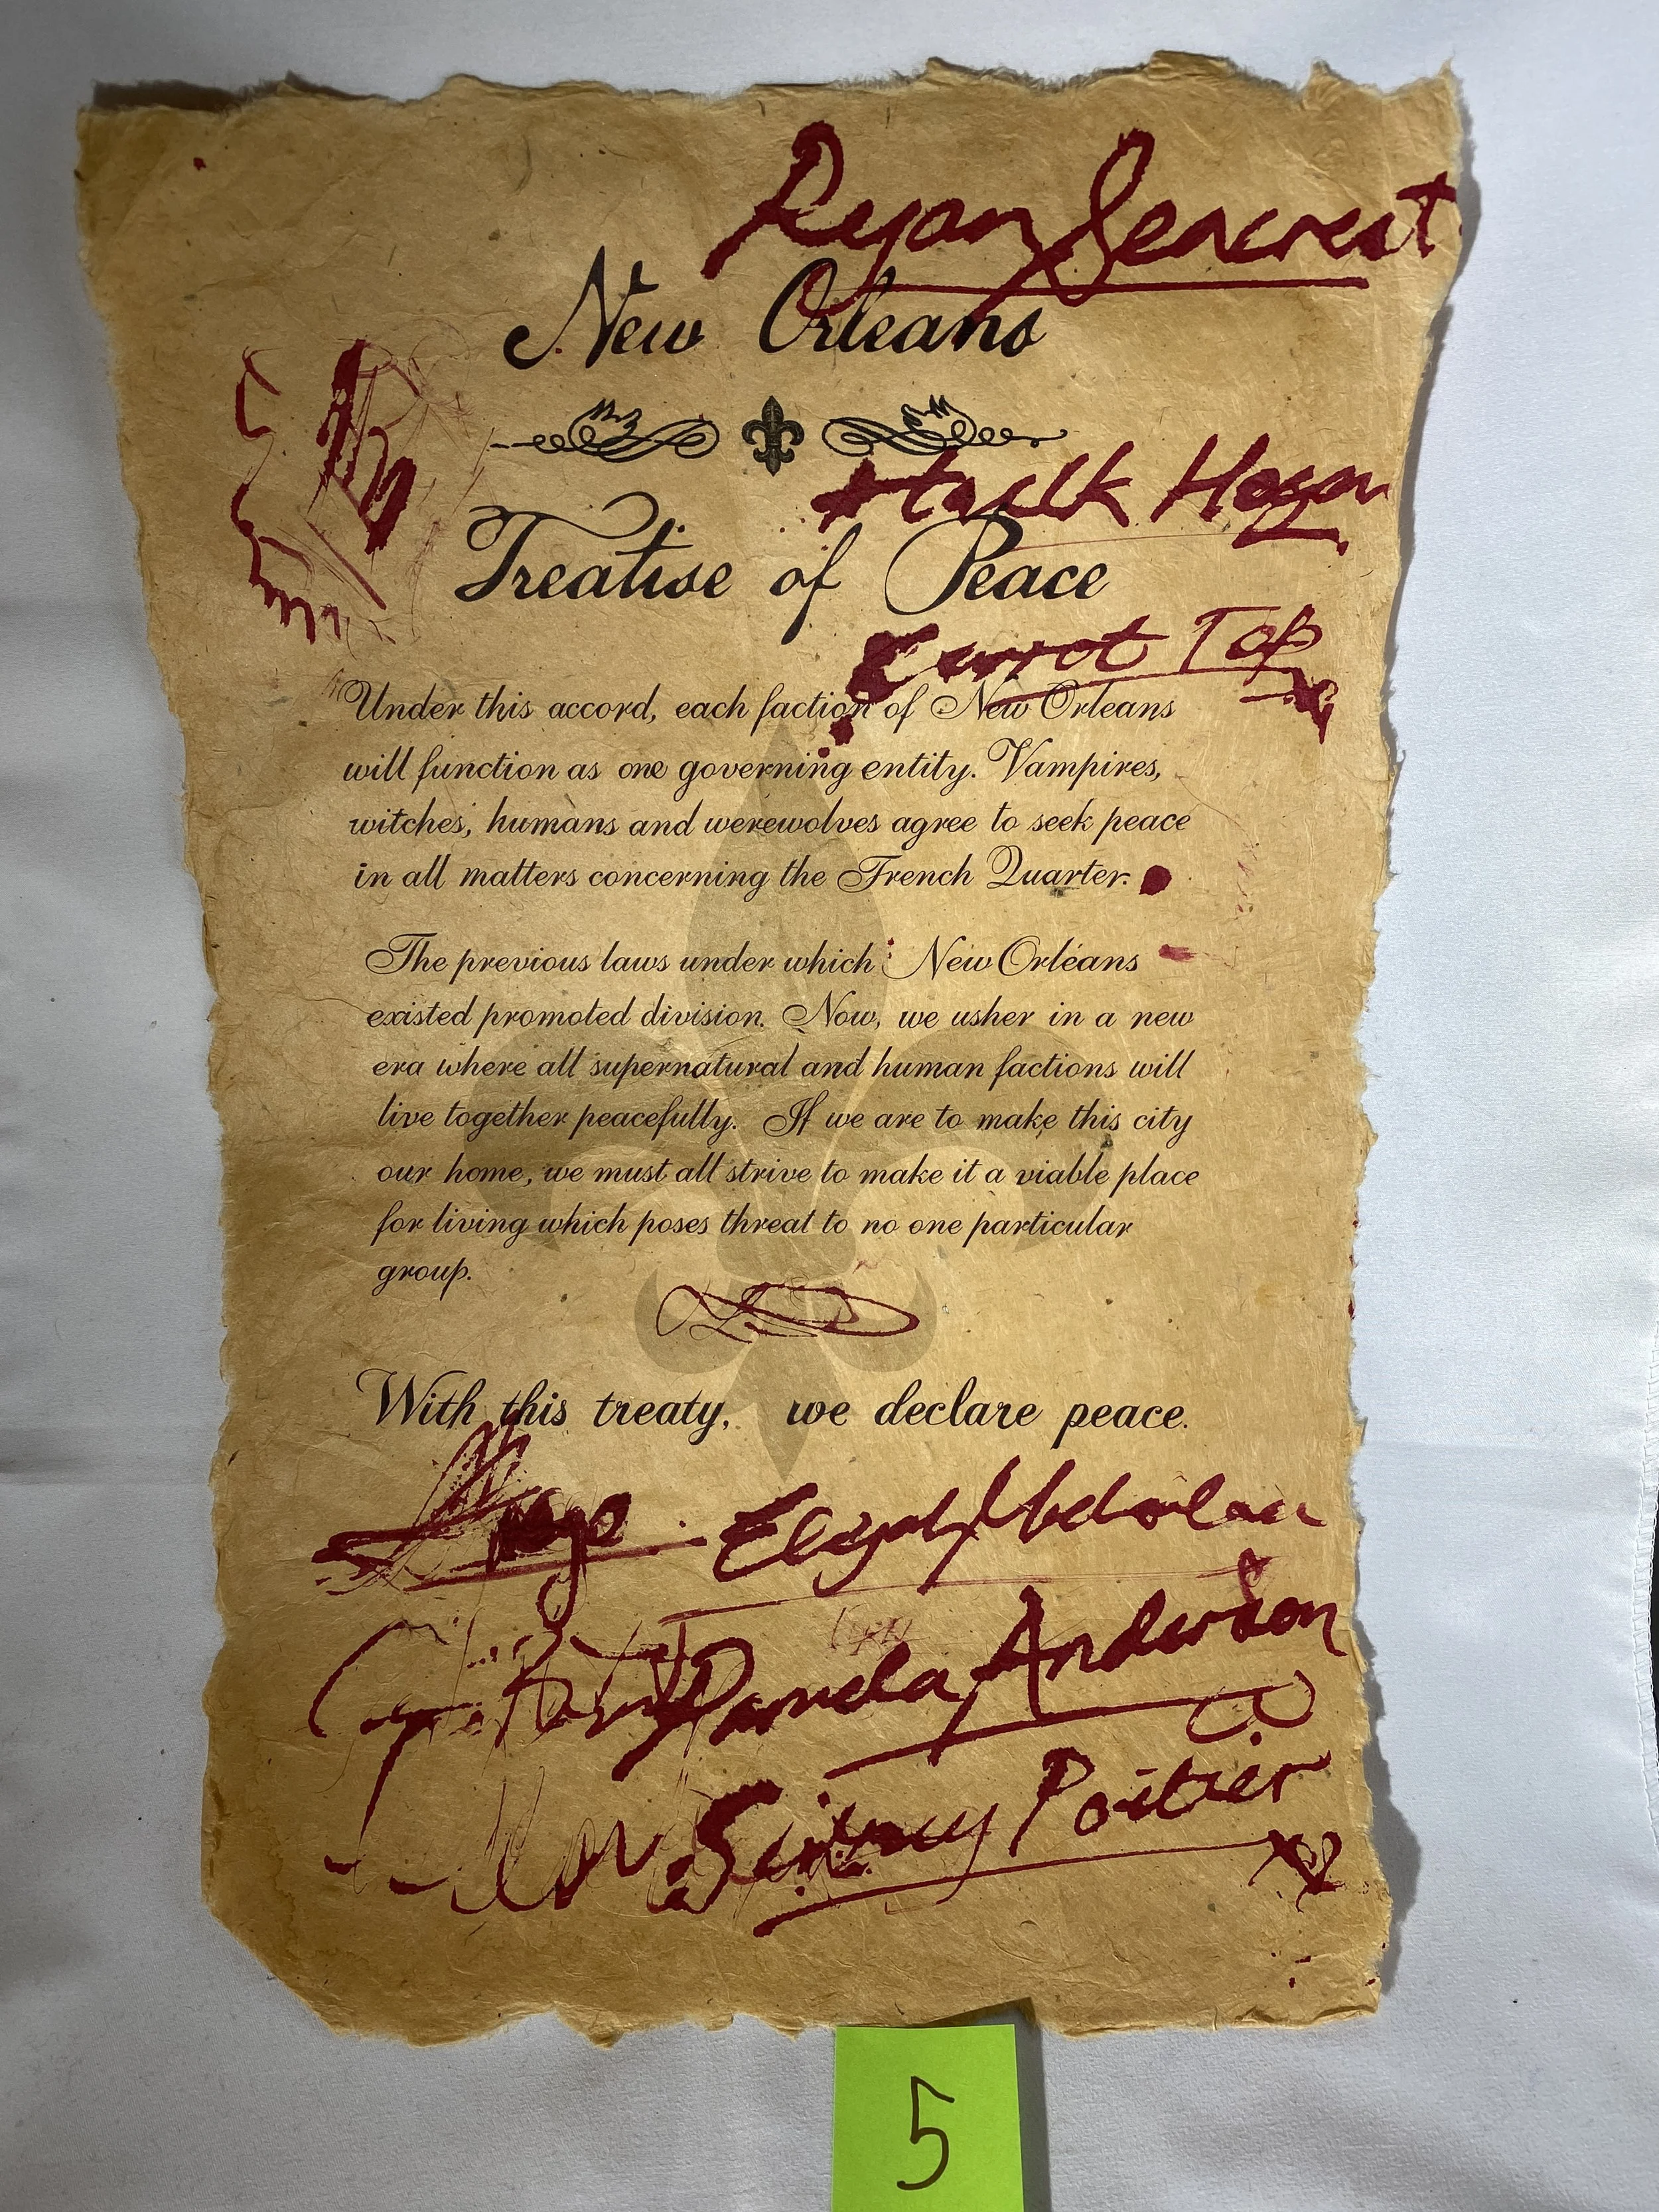 Ryan Seacrest
New Orleans
Hulk Hogan
Treatise of Peace
Carrot Top
Under this accord, each faction of New Orleans
will function as one governing entity. Vampires,
witches, humans and werewolves agree to seek peace
in all matters concerning the French Quarter.
The previous laws under which New Orleans
existed promoted division. Now, we usher in a new
era where all supernatural and human factions will
live together peacefully. If we are to make this city
our home, we must all strive to make it a viable place
for living which poses threat to no one particular
group.
With this treaty, we declare peace.
Elijah Mikaelson
Pamela Anderson
Sidney Poitier
5